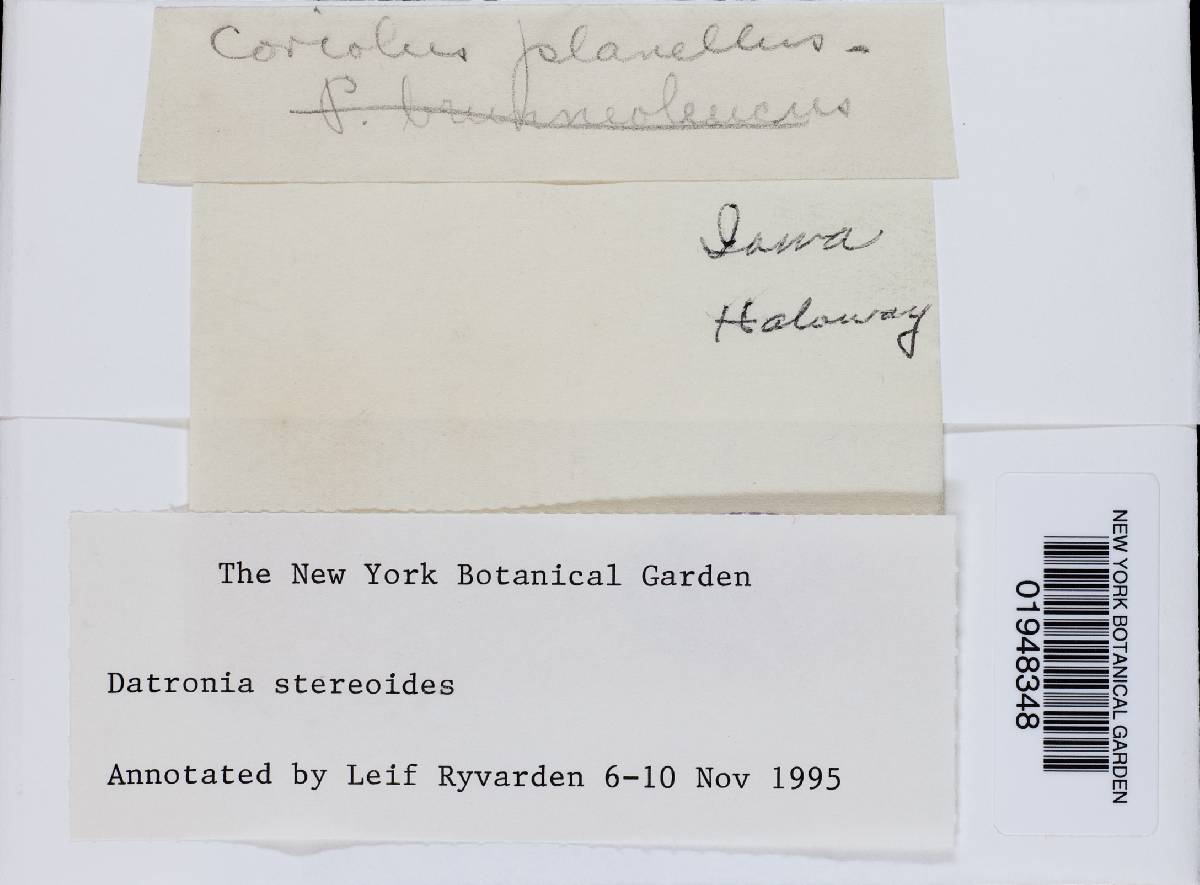 Coriolus planellus -
P. brunneoleucus
Iowa
Haloway
The New York Botanical Garden
Datronia stereoides
Annotated by Leif Ryvarden 6-10 Nov 1995
NEW YORK BOTANICAL GARDEN
01948348